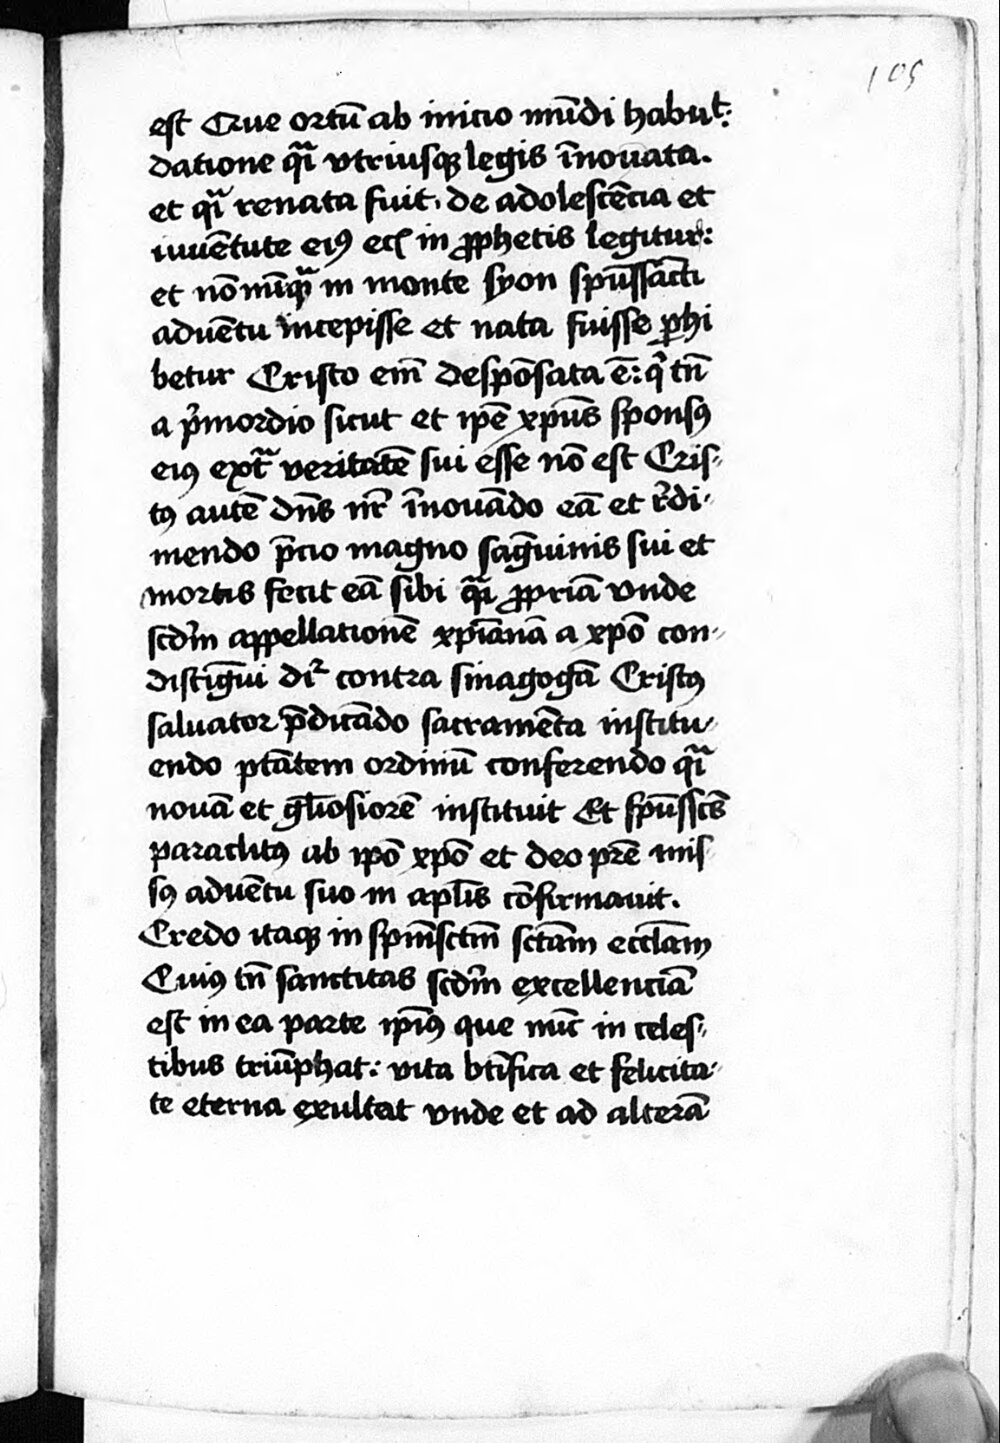 105
est Que ortū ab inicio mūdi habuit:
datione qᷓi vtriusqꝫ legis īnouata.
et qᷓi renata fuit. de adolescētia et
iuuētute eiꝰ ecī in ꝓphetis legitur:
et nōnūqᷓ in monte syon spūssācti
aduētu incepisse et nata fuisse ꝑhi
betur Cristo em̄ despōsata ē: qͥ tn̄
a pͥmordio sicut et ip̄e xpūs sponsꝰ
eiꝰ extᷓ veritatē sui esse nō est Cris-
tꝰ autē dn̄s nr̄ īnouādo eā et rͤdi-
mendo p̄cio magno sāguinis sui et
mortis fecit eā sibi qᷓi ꝓpriā vnde
scdm̄ appellationē xpīanā a xpō con-
distīgui dīr contra sinagogā Cristꝰ
saluator p̄dicādo sacramēta institu-
endo ptātem ordinū conferendo qᷓi
nouā et gl̄iosiorē instituit Et spūsscs̄
paraclitꝰ ab ip̄o xpō et deo pr̄e mis-
sꝰ aduētu suo in apl̄is cōfirmauit.
Credo itaqꝫ in spm̄sctm̄ sctām eccl̄am
Cuiꝰ tn̄ sanctitas scdm̄ excellenciā
est in ea parte ip̄iꝰ que nūc in celes-
tibus triūphat: vita btīfica et felicita-
te eterna exultat vnde et ad alterā